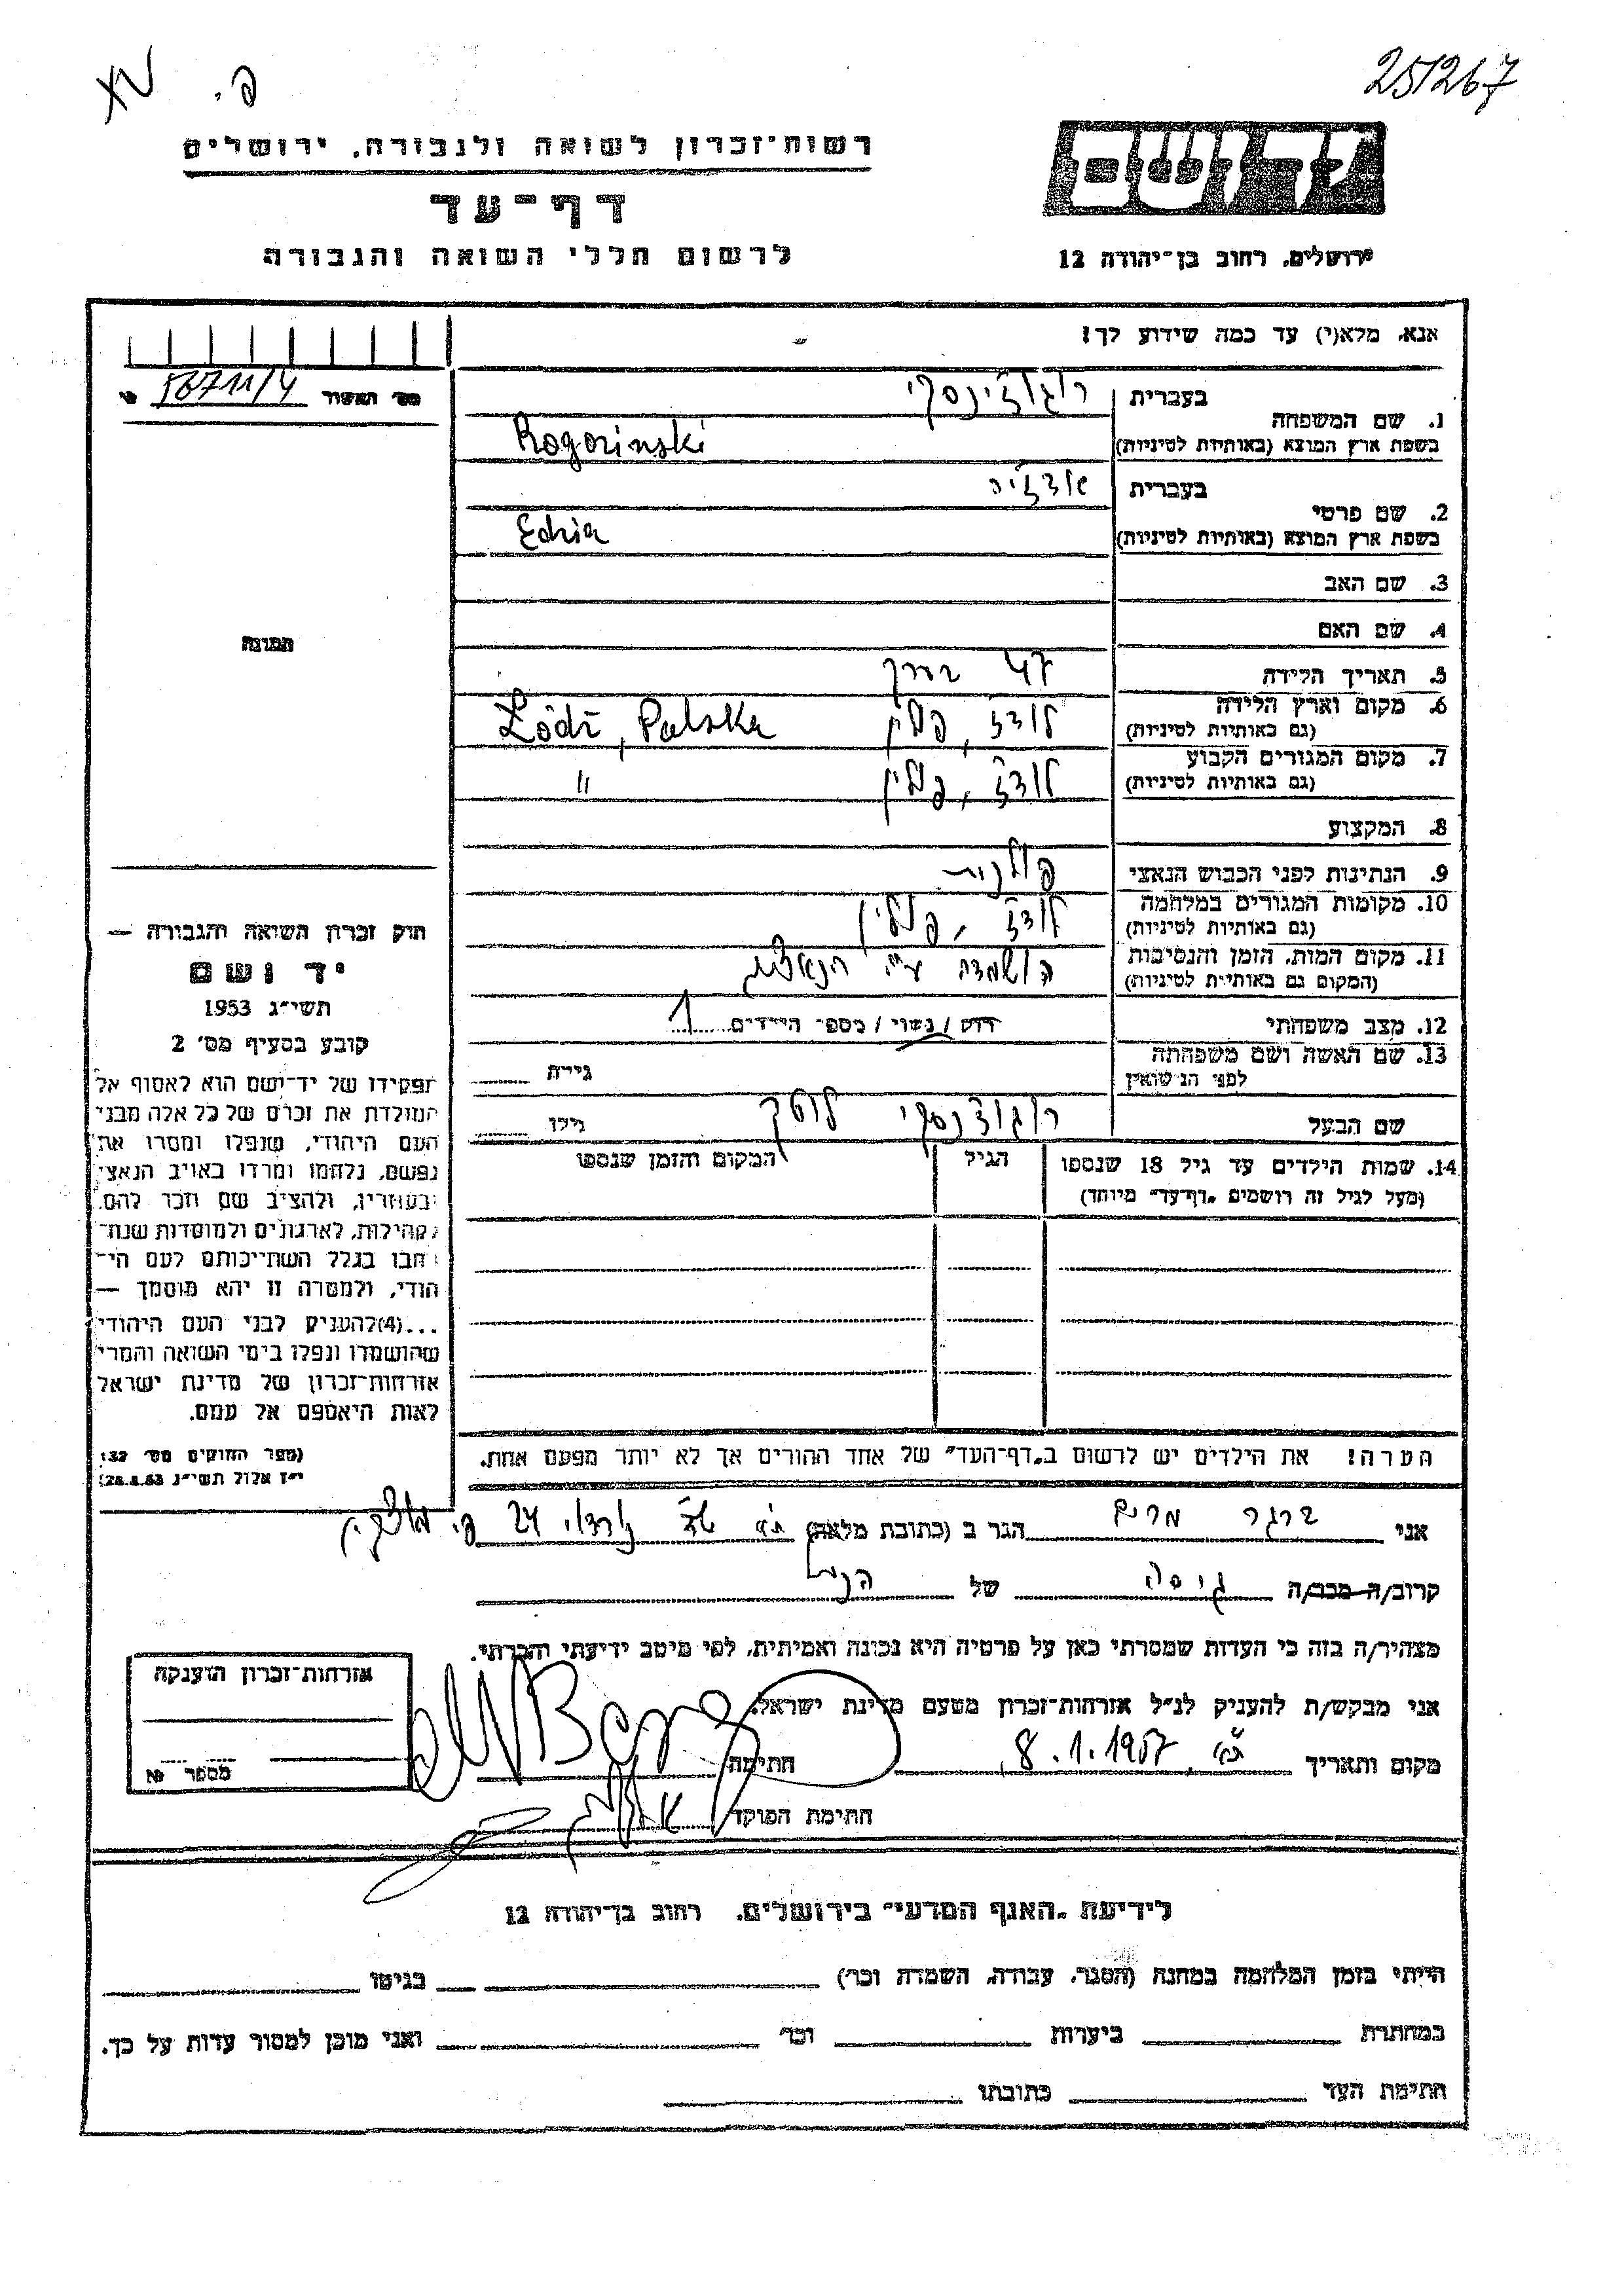 251267
פ.
רשות־זכרון לשואה ולגבורה, ירושלים
דף־עד
לרשום חללי השואה והגבורה
ירושלים, רחוב בן־יהודה 12
אנא, מלא(י) עד כמה שידוע לך!
מס׳ האשור
1. שם המשפחה
בעברית רוגוזינסקי
בשפת ארץ המוצא (באותיות לטיניות) Rogozinski
2. שם פרטי
בעברית אדז׳יה
בשפת ארץ המוצא (באותיות לטיניות) Edzia
3. שם האב
4. שם האם
5. תאריך הלידה 47 בערך
6. מקום וארץ הלידה
(גם באותיות לטיניות) לודז, פולין Łódź, Polska
7. מקום המגורים הקבוע
(גם באותיות לטיניות) לודז, פולין "
8. המקצוע
9. הנתינות לפני הכבוש הנאצי פולנית
10. מקומות המגורים במלחמה
(גם באותיות לטיניות) לודז, פולין
11. מקום המות, הזמן והנסיבות
(המקום גם באותיות לטיניות) הושמדה ע״י הנאצים
12. מצב משפחתי רווק/נשוי/מספר הילדים 1
13. שם האשה ושם משפחתה
לפני הנישואין גילה
שם הבעל רוגוזינסקי גילו
14. שמות הילדים עד גיל 18 שנספו
(מעל לגיל זה רושמים „דף־עד״ מיוחד)
הגיל
המקום והזמן שנספו
תמונה
חוק זכרון השואה והגבורה —
יד ושם
תשי״ג 1953
קובע בסעיף מס׳ 2
תפקידו של יד־ושם הוא לאסוף אל
המולדת את זכרם של כל אלה מבני
העם היהודי, שנפלו ומסרו את
נפשם, נלחמו ומרדו באויב הנאצי
ובעוזריו, ולהציב שם וזכר להם,
לקהילות, לארגונים ולמוסדות שנח־
רבו בגלל השתייכותם לעם הי־
הודי, ולמטרה זו יהא מוסמך —
...(4)להעניק לבני העם היהודי
שהושמדו ונפלו בימי השואה והמרי
אזרחות־זכרון של מדינת ישראל
לאות היאספם אל עמם.
(ספר החוקים מס׳ 132
י״ז אלול תשי״ג 28.8.53)
הערה! את הילדים יש לרשום ב„דף־העד״ של אחד ההורים אך לא יותר מפעם אחת.
אני ברגר מרים הגר ב (כתובת מלאה) 24
קרוב/ה מכר/ה גיסה של הנ״ל
מצהיר/ה בזה כי העדות שמסרתי כאן על פרטיה היא נכונה ואמיתית, לפי מיטב ידיעתי והכרתי.
אני מבקש/ת להעניק לנ״ל אזרחות־זכרון מטעם מדינת ישראל.
מקום ותאריך 8.1.1957 חתימה
חתימת הפוקד
אזרחות־זכרון הוענקה
מספר
לידיעת „האגף המדעי״ בירושלים, רחוב בן־יהודה 12
הייתי בזמן המלחמה במחנה (הסגר, עבודה, השמדה וכו׳) בגיטו
במחתרת ביערות וכו׳ ואני מוכן למסור עדות על כך.
חתימת העד כתובתו